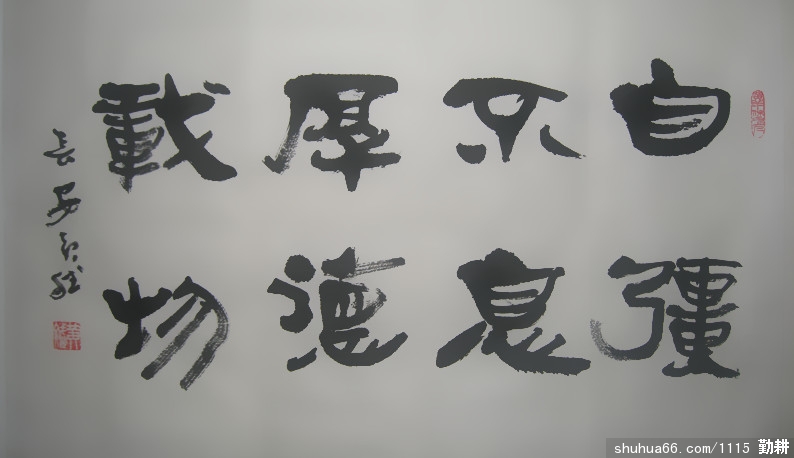 自彊
不息
厚德
載物
長安
shuhua66.com/1115 勤耕